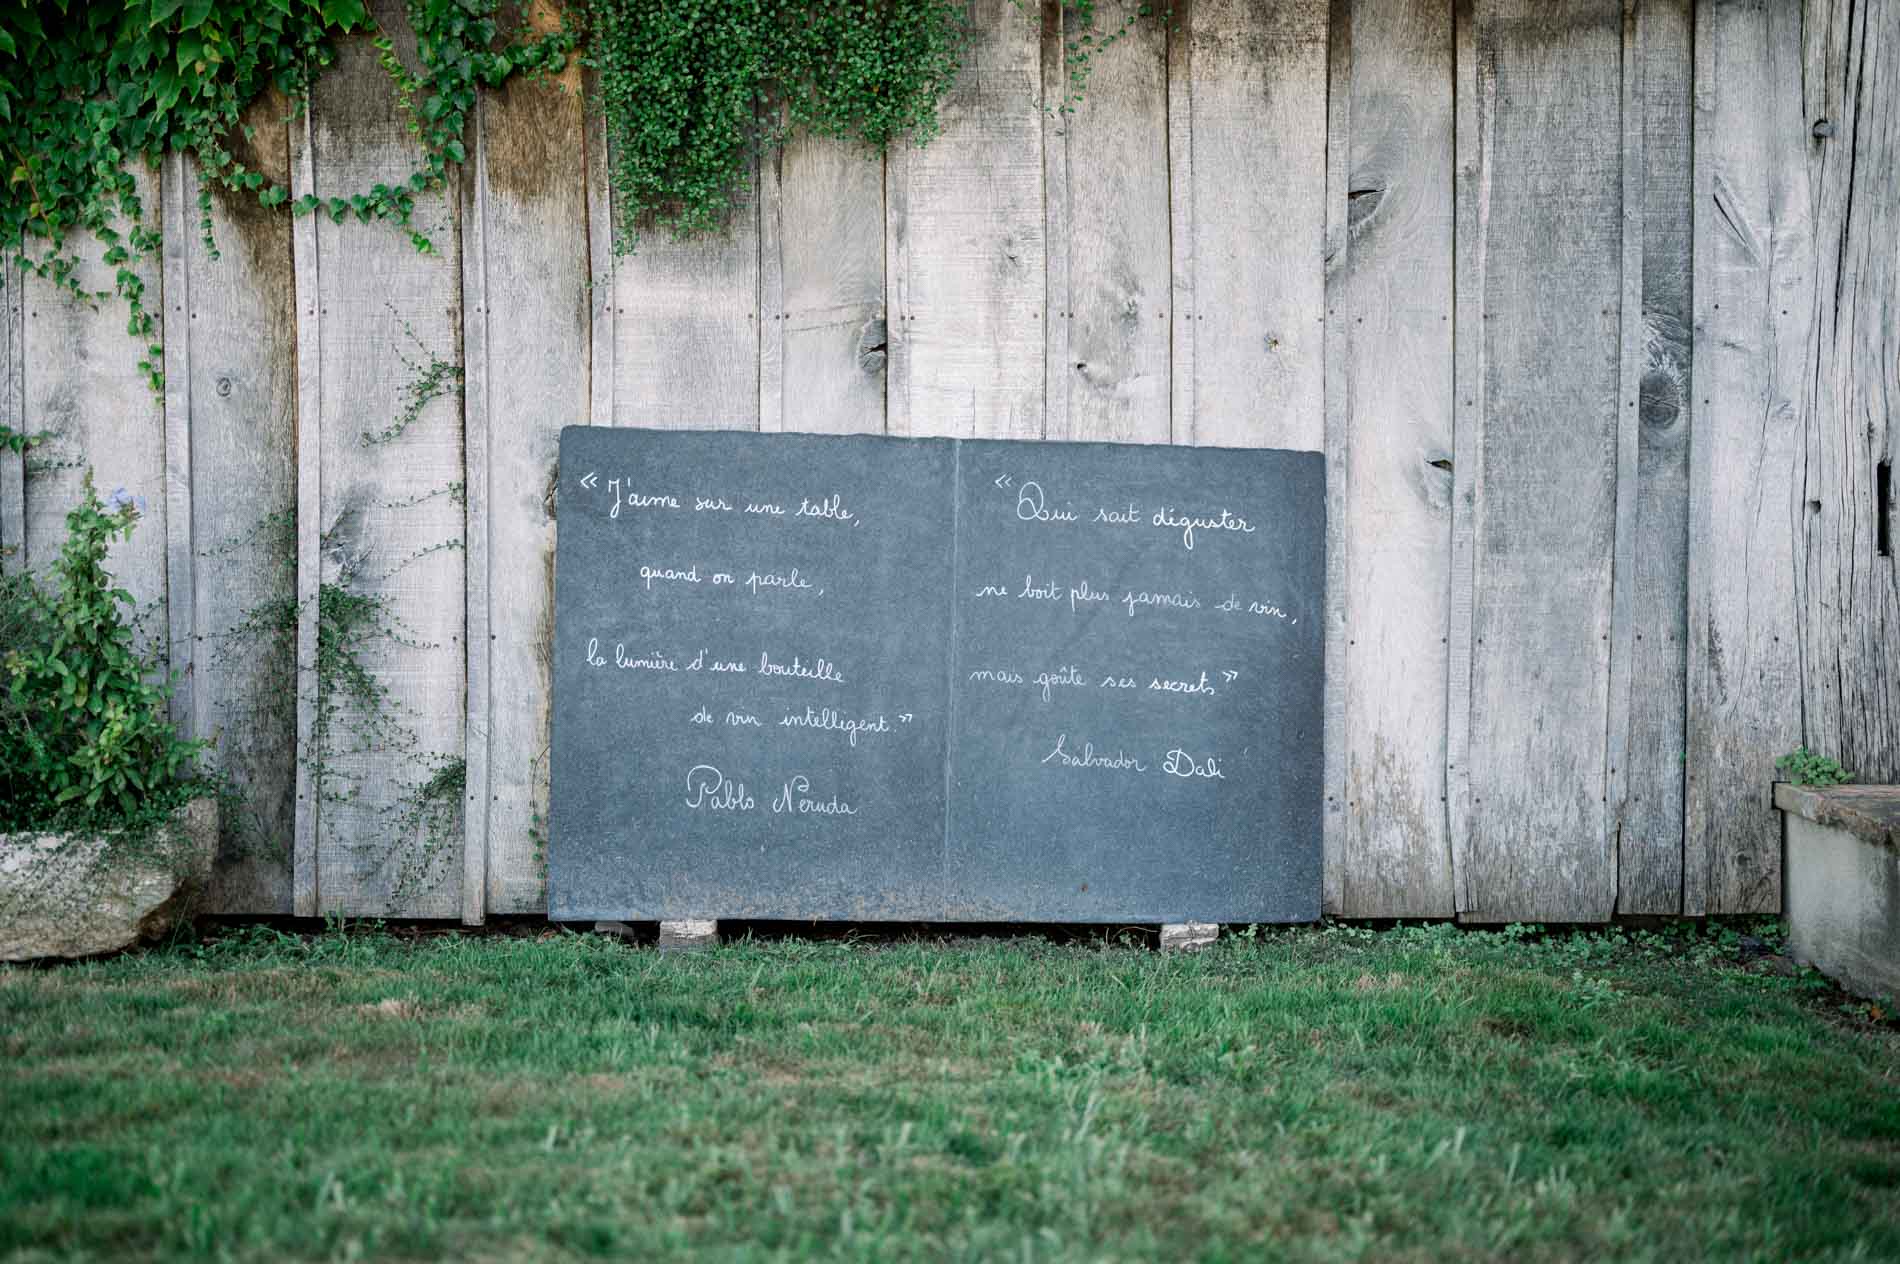 « J'aime sur une table,
quand on parle,
la lumière d'une bouteille
de vin intelligent. »
Pablo Neruda
« Qui sait déguster
ne boit plus jamais de vin,
mais goûte ses secrets »
Salvador Dali